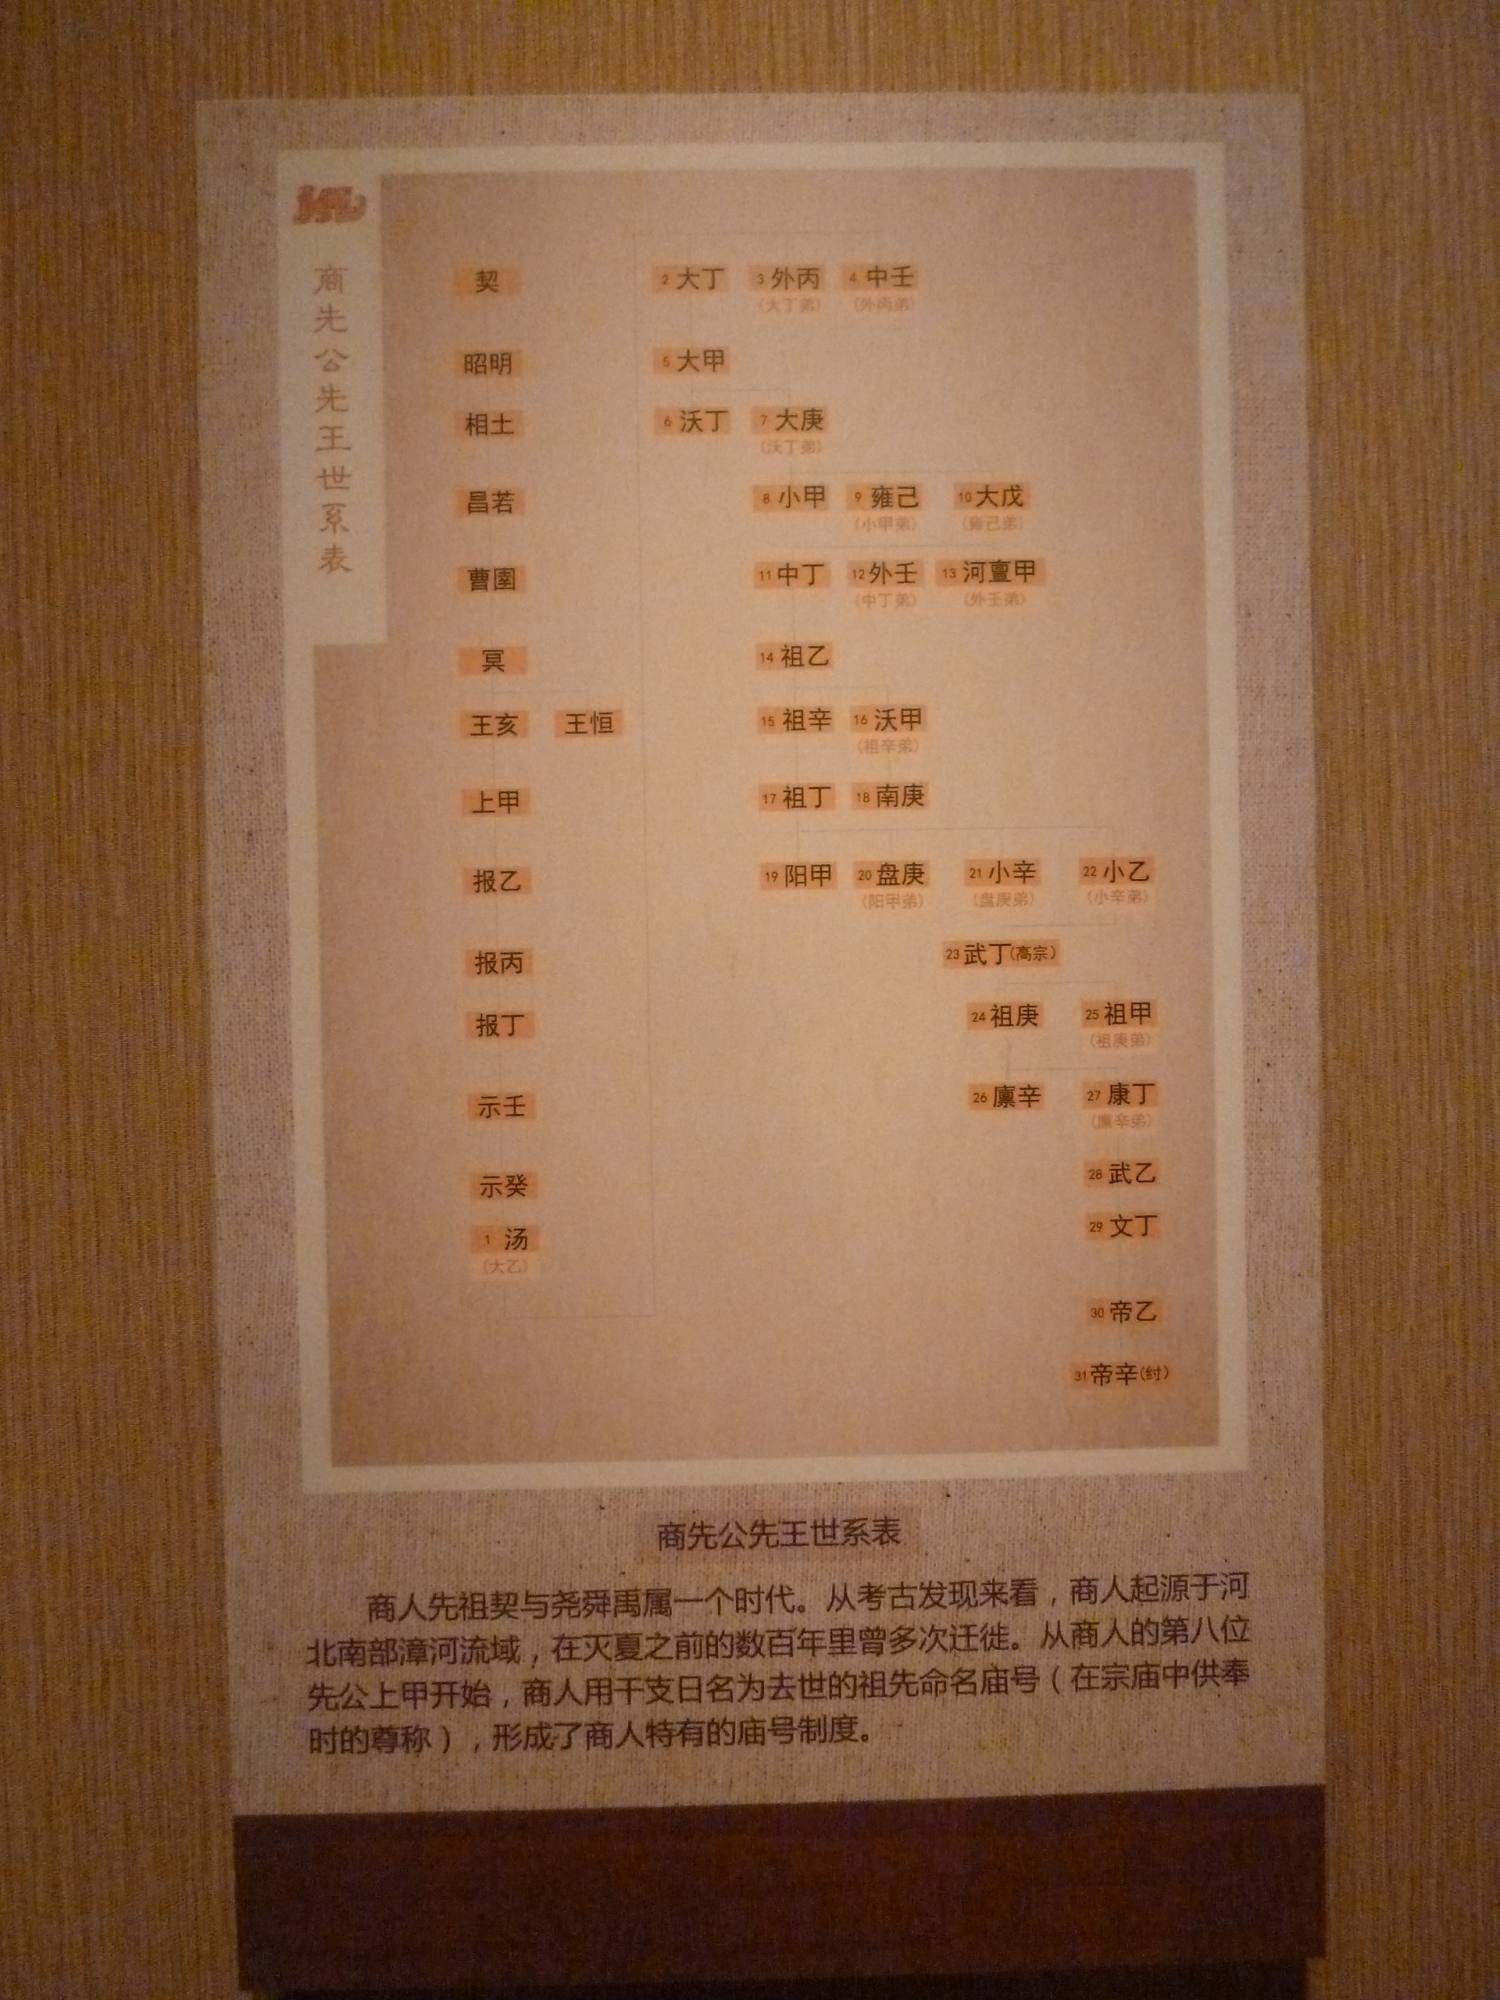 商先公先王世系表
契 2 大丁 3 外丙 4 中壬
(大丁弟) (外丙弟)
昭明 5 大甲
相土 6 沃丁 7 大庚
(沃丁弟)
昌若 8 小甲 9 雍己 10 大戊
(小甲弟) (雍己弟)
曹圉 11 中丁 12 外壬 13 河亶甲
(中丁弟) (外壬弟)
冥 14 祖乙
王亥 王恒 15 祖辛 16 沃甲
(祖辛弟)
上甲 17 祖丁 18 南庚
报乙 19 阳甲 20 盘庚 21 小辛 22 小乙
(阳甲弟) (盘庚弟) (小辛弟)
报丙 23 武丁(高宗)
报丁 24 祖庚 25 祖甲
(祖庚弟)
示壬 26 廪辛 27 康丁
(廪辛弟)
示癸 28 武乙
1 汤 29 文丁
(大乙)
30 帝乙
31 帝辛(纣)
商先公先王世系表
商人先祖契与尧舜禹属一个时代。从考古发现来看，商人起源于河
北南部漳河流域，在灭夏之前的数百年里曾多次迁徙。从商人的第八位
先公上甲开始，商人用干支日名为去世的祖先命名庙号（在宗庙中供奉
时的尊称），形成了商人特有的庙号制度。